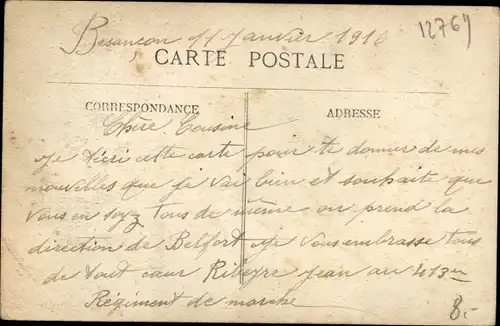 Besançon 11 Janvier 1916
12764
CARTE POSTALE
CORRESPONDANCE
ADRESSE
Chère Cousine
Je t'écri cette carte pour te donner de mes
nouvelles que je vai bien et souhaite que
vous en soyz tous de même on prend la
direction de Belfort Je vous embrasse tous
de tout cœur Ribeyre Jean au 413em
Régiment de marche
8.-